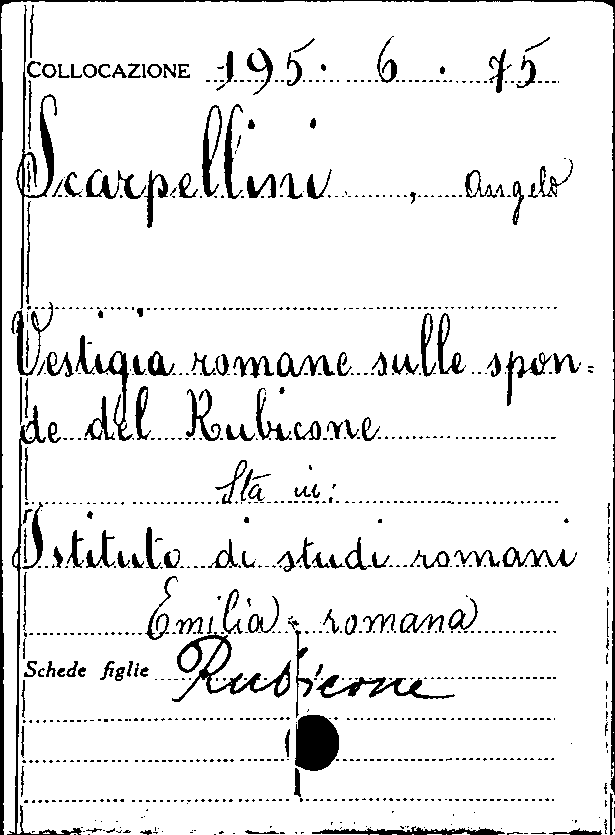 COLLOCAZIONE 195. 6. 75
Scarpellini, Angelo
Vestigia romane sulle spon=
de del Rubicone
Sta in:
Istituto di studi romani
Emilia romana
Schede figlie Rubicone